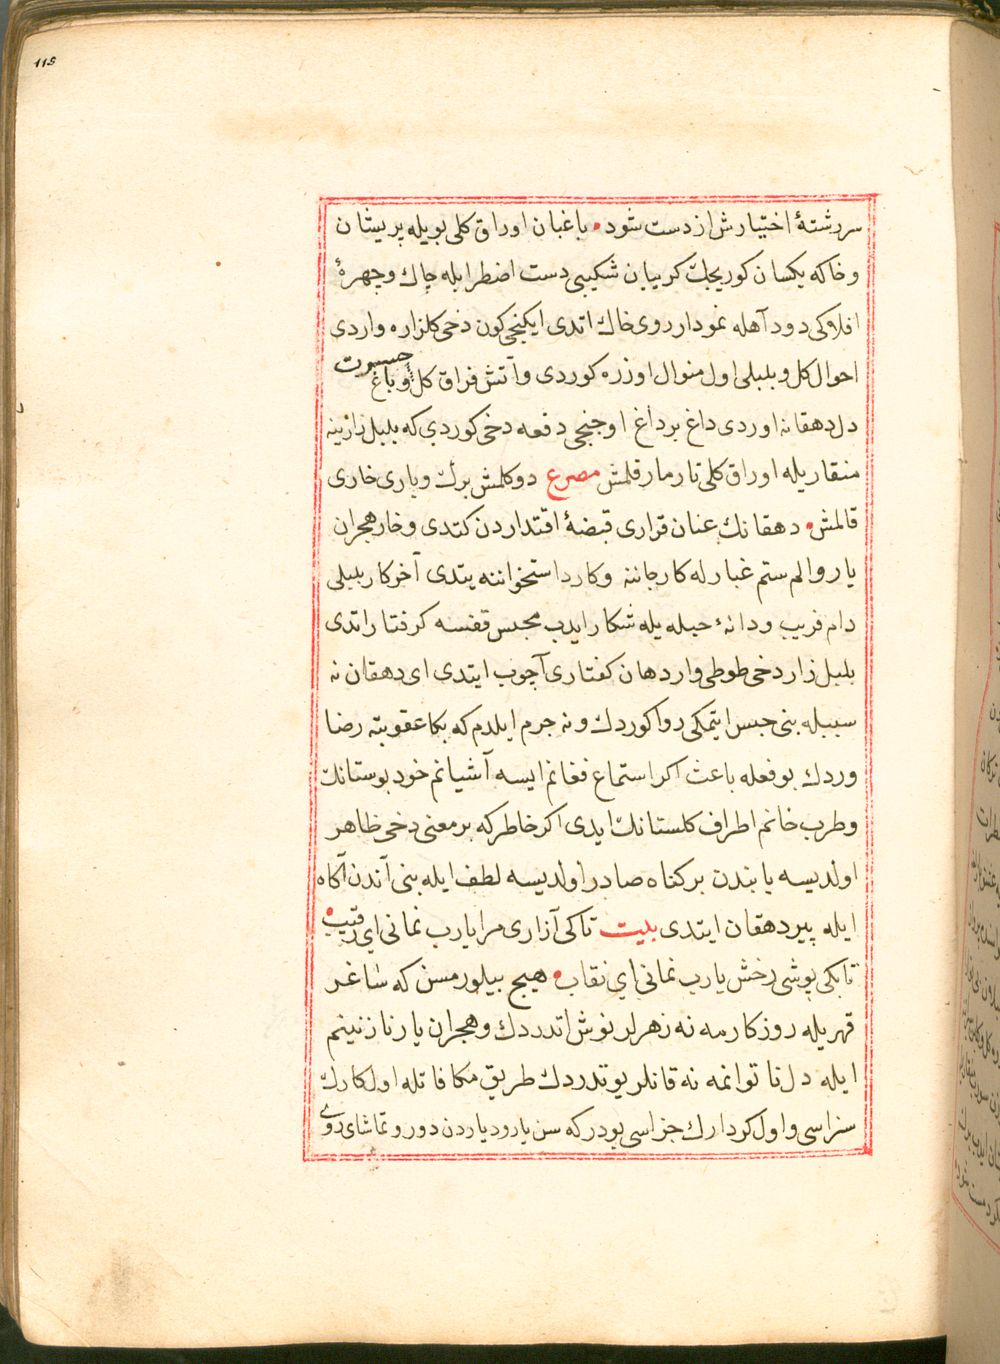 118
سررشتهٔ اختیارش از دست شود • باغبان اوراق کلی بویله پریشان
و خاکه یکسان کوریجک کریبان شکیبی دست اضطرابله چاك و چهرهٔ
افلاکی دود آهله نمودار روی خاك اتدی ایکنجی کون دخی کلزاره واردی
احوال کل و بلبلی اول منوال اوزره کوردی و آتش فراق کل و باغ
دل دهقانه اوردی داغ بر داغ اوجنجی دفعه دخی کوردی که بلبل نازنینه
منقاریله اوراق کلی تارمار قلمش مصرع دوکلمش برك و باری خاری
قالمش • دهقانك عنان قراری قبضهٔ اقتداردن کتدی و خار هجران
یار و الم ستم غبارله کار جاننه و کارد استخواننه یتدی آخر کار بلبلی
دام فریب و دانهٔ حیله یله شکار ایدب محبس قفسه کرفتار اتدی
بلبل زار دخی طوطی وار دهان کفتاری آچوب ایتدی ای دهقان نه
سببله بنی حبس ایتمکی روا کوردك و نه جرم ایلدم که بکا عقوبته رضا
وردك بو فعله باعث اکر استماع فغانم ایسه آشیانم خود بوستانك
و طرب خانم اطراف کلستانك ایدی اکر خاطرکه بر معنی دخی ظاهر
اولدیسه یا بندن بر کناه صادر اولدیسه لطف ایله بنی آندن آکاه
ایله پیر دهقان ایتدی بیت تاکی آزاری مرا یارب نمانی ای رقیب •
تا بکی پوشی رخش یارب نمانی ای نقاب • هیچ بیلورمسن که ساغر
قهریله روزکارمه نه زهرلر نوش اتدردك و هجران یار نازنینم
ایله دل ناتوانمه نه قانلر یوتدردك طریق مکافاتله اول کارك
سزاسی و اول کردارك جزاسی بودر که سن یار و دیاردن دور و تماشای روی